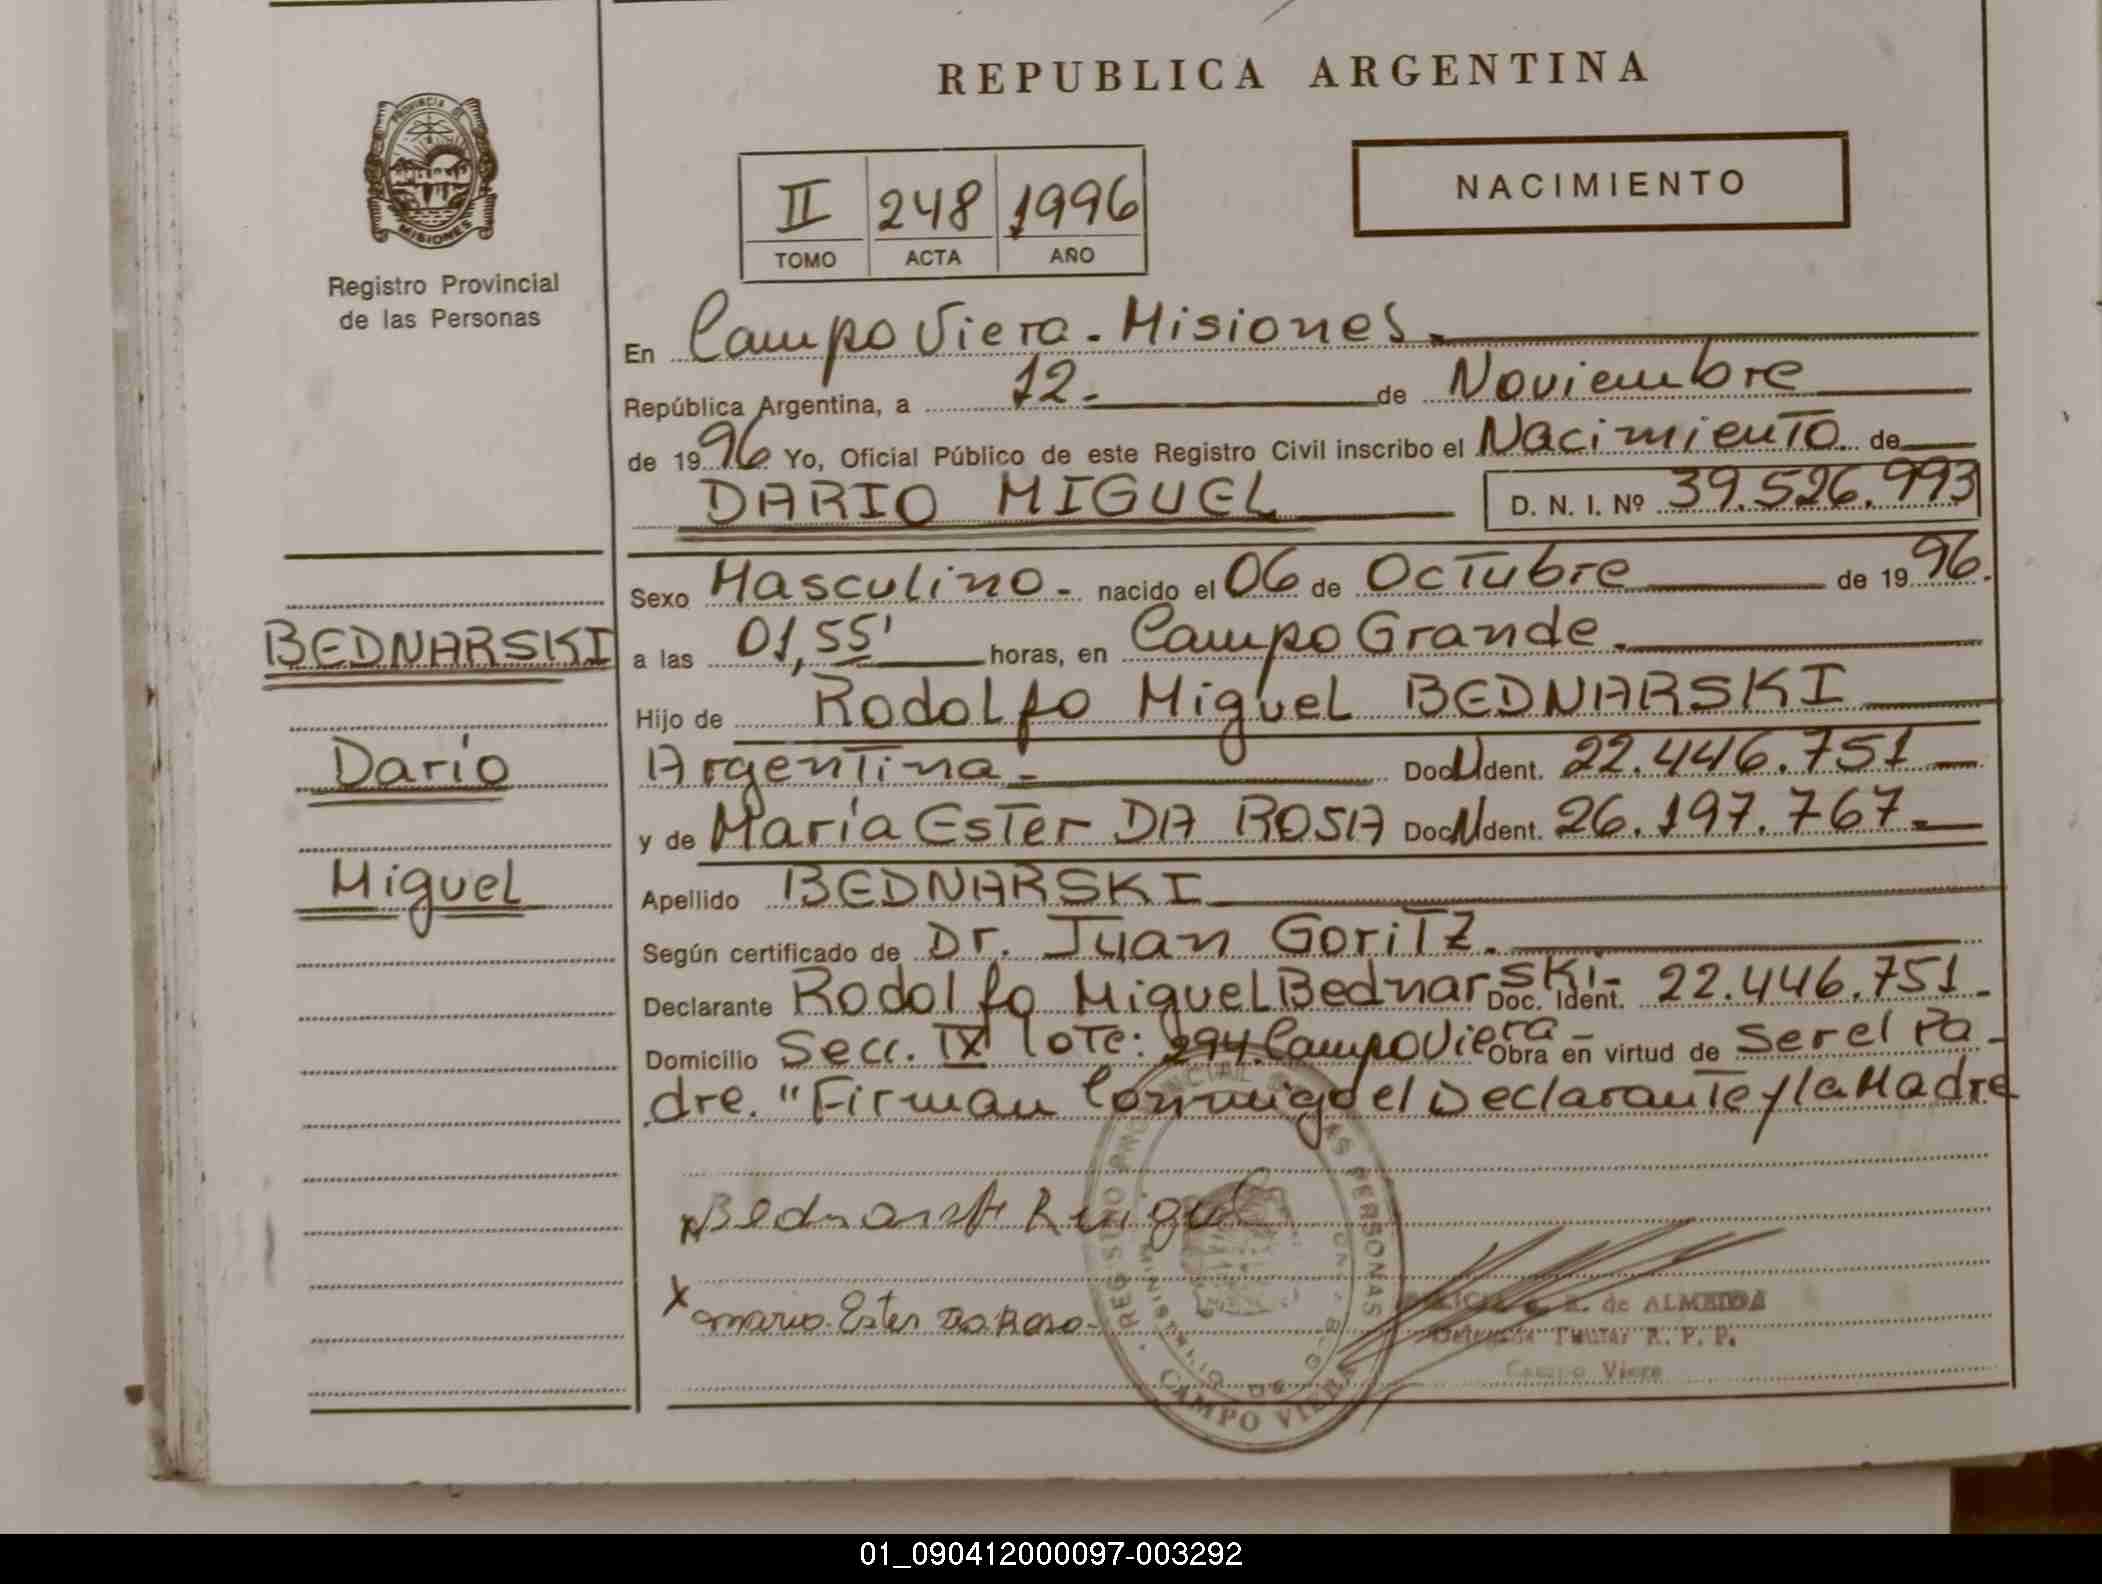 REPUBLICA ARGENTINA
PROVINCIA DE
MISIONES
Registro Provincial
de las Personas
II 248 1996
TOMO ACTA AÑO
NACIMIENTO
En Campo Viera - Misiones.
República Argentina, a 12- de Noviembre
de 1996 Yo, Oficial Público de este Registro Civil inscribo el Nacimiento de
DARIO MIGUEL D. N. I. Nº 39.526.993
Sexo Masculino - nacido el 06 de Octubre de 1996.
BEDNARSKI
a las 01,55' horas, en Campo Grande.
Hijo de Rodolfo Miguel BEDNARSKI
Dario
Argentina - Doc N Ident. 22.446.751
y de María Ester DA ROSA Doc N Ident. 26.197.767
Miguel
Apellido BEDNARSKI
Según certificado de Dr. Juan Goritz.
Declarante Rodolfo Miguel Bednarski - Doc. Ident. 22.446.751
Domicilio Secc. IX lote: 294. Campo Viera - Obra en virtud de Ser el Pa-
dre. "Firman Conmigo el Declarante y la Madre
x Bednarski Miguel
x Maria Ester Da Rosa
de ALMEIDA
R. P. P.
Campo Viera
PERSONAS
CAMPO VIERA
01_090412000097-003292